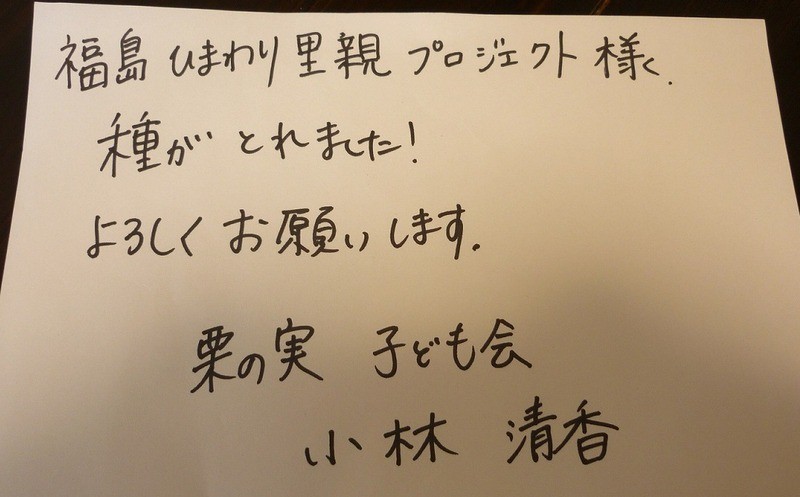 福島 ひまわり里親 プロジェクト 様へ.
種が とれました!
よろしく お願いします.
栗の実 子ども会
小林 清香